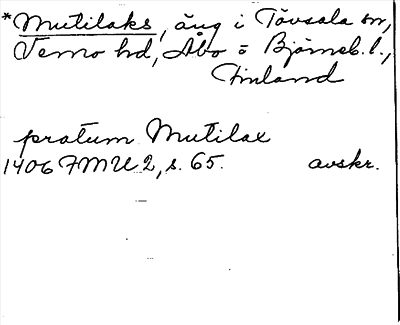 *Mutilaks, äng i Tövsala sn,
Vemo hd, Åbo o Björneb. l.,
Finland
pratum Mutilax
1406 FMU 2, s. 65. avskr.